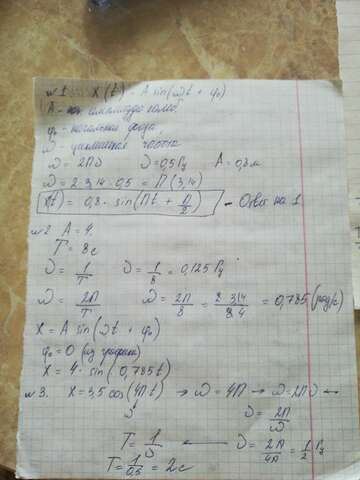 №1. X(t) = A sin(ωt + φ₀)
A - амплитуда колеб.
φ₀ - начальная фаза,
ω - циклическая частота
ω = 2πν ν = 0,5 Гц A = 0,8 м
ω = 2·3,14·0,5 = π (3,14)
X(t) = 0,8 · sin(πt + π/2) - Ответ на 1
№2 A = 4.
T = 8 с
ν = 1/T ν = 1/8 = 0,125 Гц
ω = 2π/T ω = 2π/8 = 2·3,14/8 = 0,785 (рад/с)
X = A sin(ωt + φ₀)
φ₀ = 0 (из графика)
X = 4 · sin(0,785t)
№3. X = 3,5 cos(4πt) → ω = 4π → ω = 2πν
ν = 2π/ω
T = 1/ν ← ν = 2π/4π = 1/2 Гц
T = 1/0,5 = 2 с